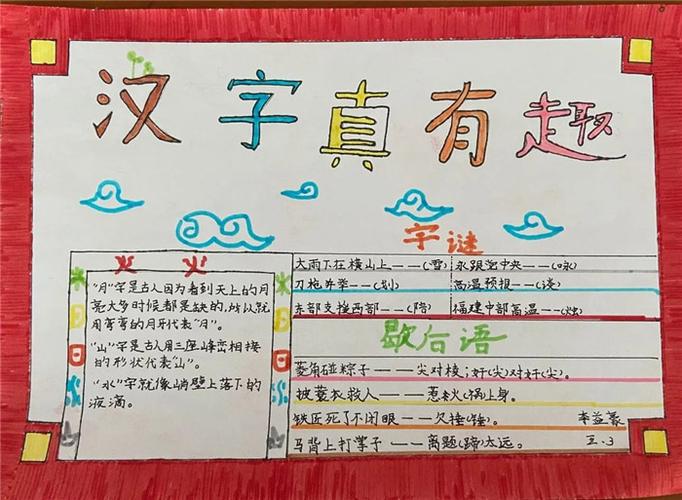 汉字真有趣
火 火
"月"字是古人因为看到天上的月
亮大多时候都是缺的,所以就
用弯弯的月牙代表"月".
"山"字是古人用三座峰峦相接
的形状代表"山".
"水"字就像峭壁上落下的
液滴。
月
日
月
日
字谜
大雨下在横山上——(雪) 永跟党中央——(咏)
刀枪并举——(划) 高温预报——(谈)
东部支援西部——(陪) 福建中部高温——(烛)
歇后语
菱角碰粽子——尖对棱;奸(尖)对奸(尖)。
披蓑衣救人——惹火(祸)上身。
铁匠死了不闭眼——欠捶(锤)。 李益豪
马背上打掌子——离题(蹄)太远。 三.3